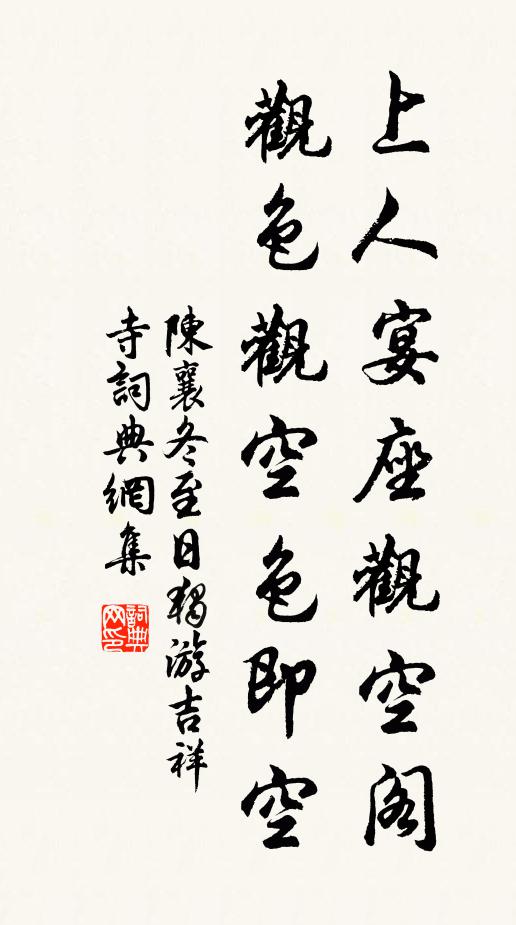 上人宴座觀空閣
觀色觀空色即空
陳襄冬至日獨游吉祥
寺詞典網集
詞典网印